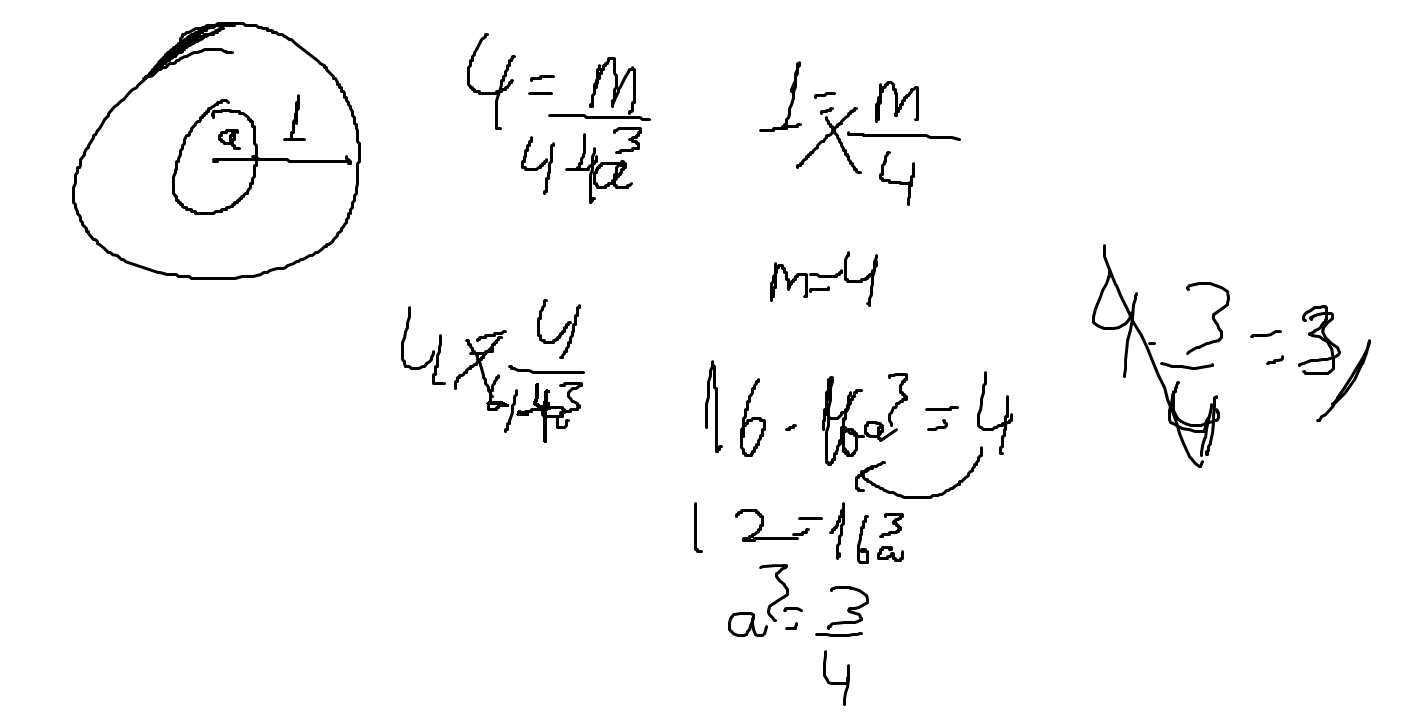 a 1
4 = m / 4-4a³
1 = m / 4
m=4
4 = 4 / 4-4a³
16 - 16a³ = 4
12 = 16a³
a³ = 3/4
4 · 3/4 = 3,